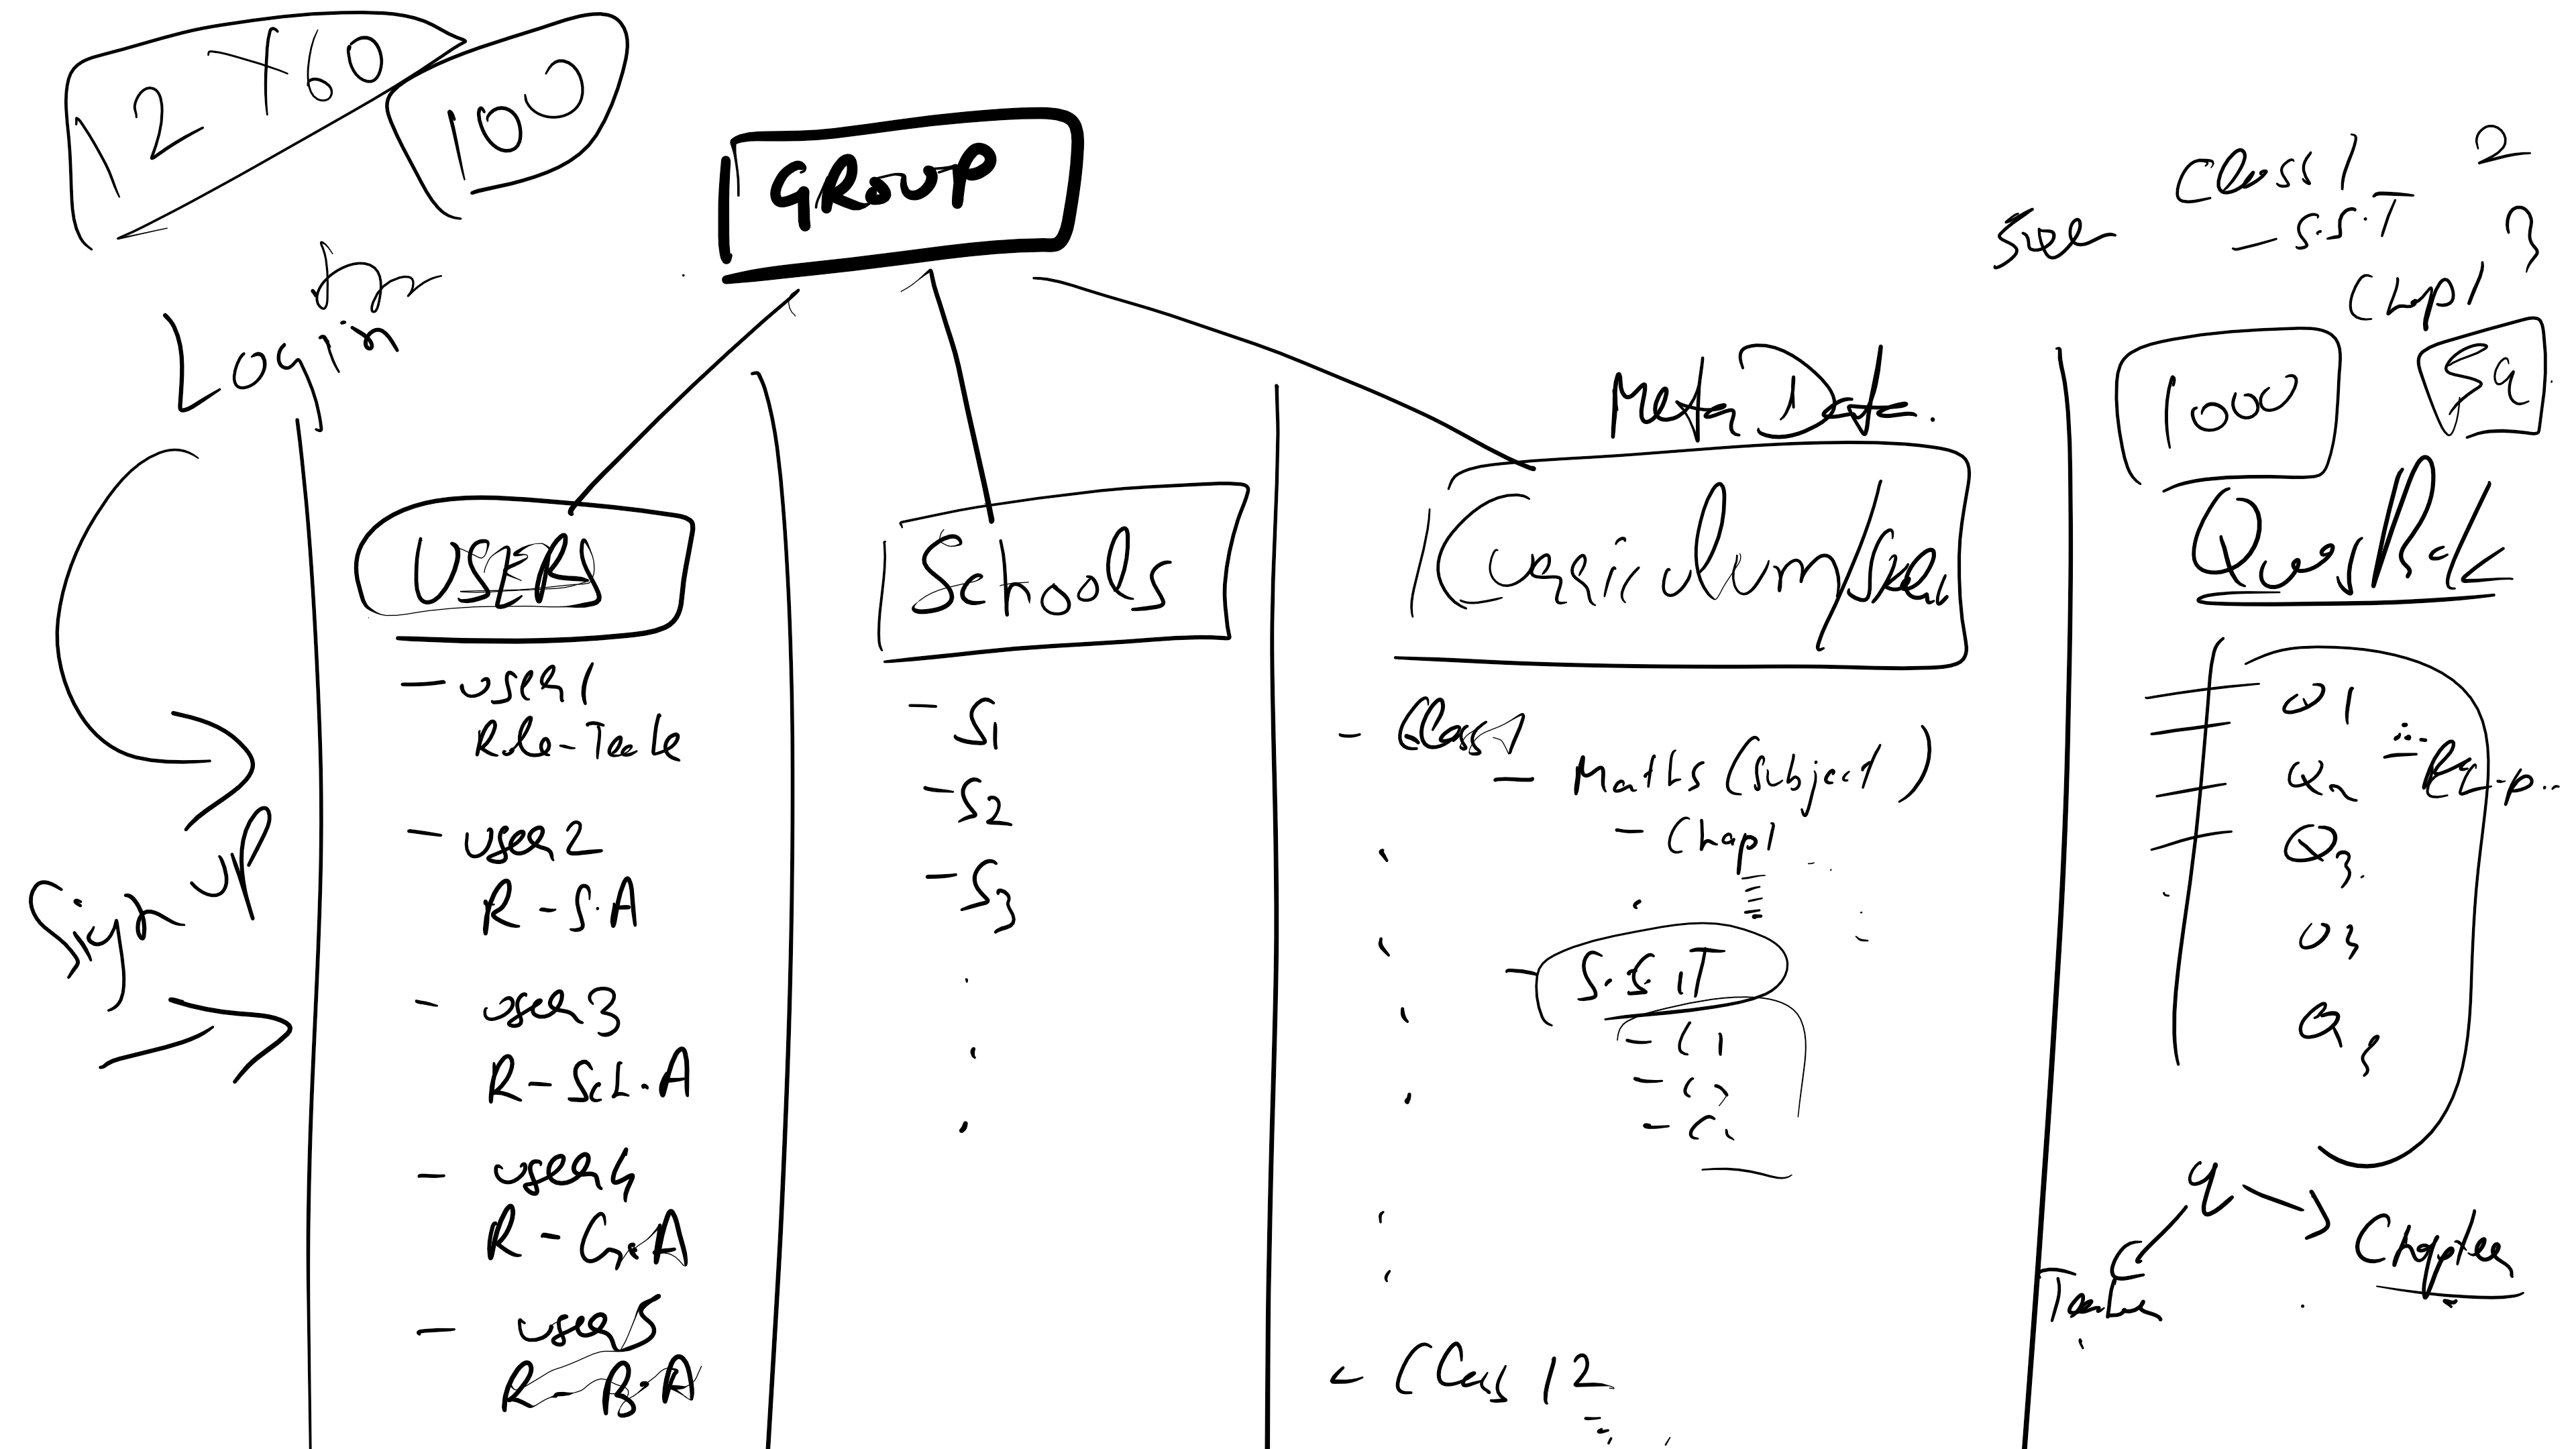 12 x 60
100
GROUP
Login
Sign UP
USERS
- user1
Role-Teache
- user2
R - S.A
- user3
R - Sch.A
- user4
R - Gr.A
- user5
R - B.A
Schools
- S1
- S2
- S3
Meta Data.
Curriculum/
- Class 1
- Maths (Subject)
- Chap1
- S.S.T
- C1
- Class 12
Class 1 2
- S.S.T 3
Chap1
1000
5q
Q1
Q2
Q3.
Q3
q
Teacher
Chapter